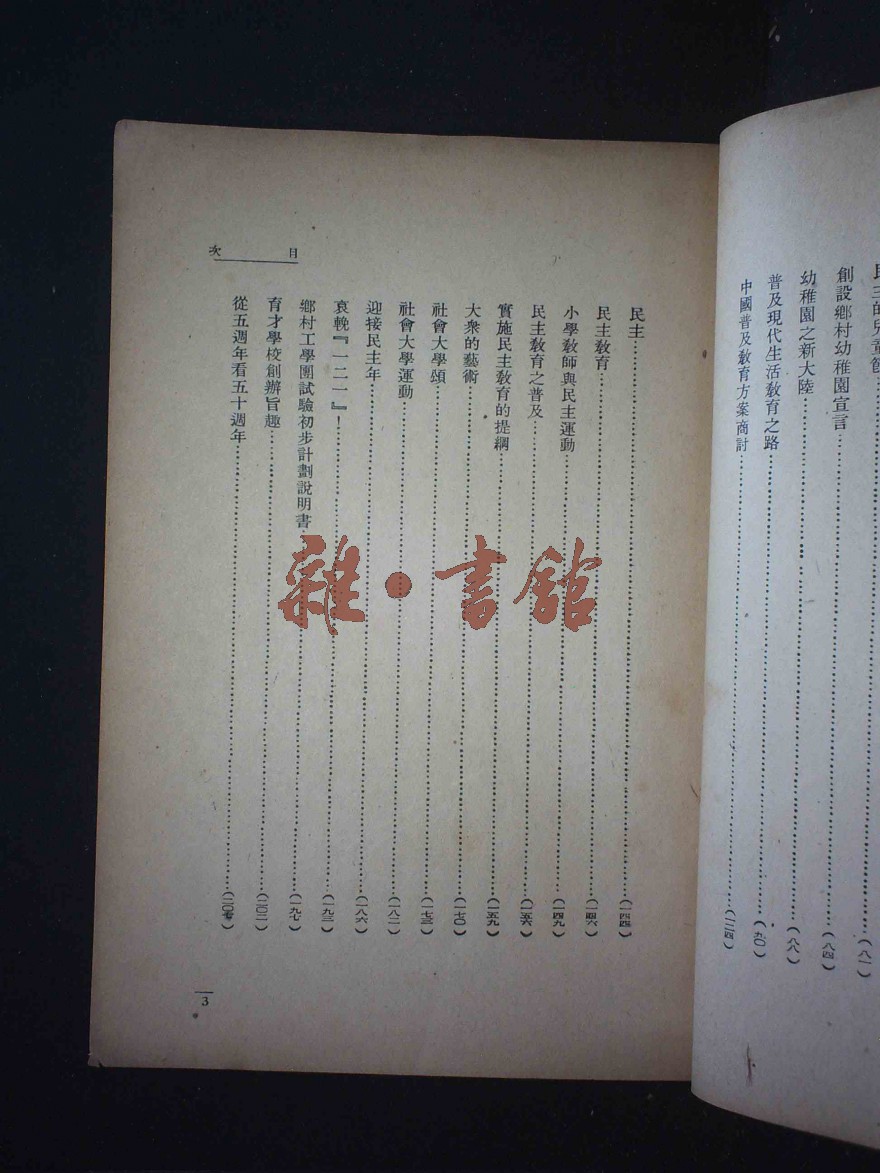 創設鄉村幼稚園宣言……(八四)
幼稚園之新大陸……(八八)
普及現代生活教育之路……(九〇)
中國普及教育方案商討……(一二四)
目次
民主……(一四四)
民主教育……(一四六)
小學教師與民主運動……(一四九)
民主教育之普及……(一五六)
實施民主教育的提綱……(一五九)
大衆的藝術……(一七〇)
社會大學頌……
社會大學運動……(一八二)
迎接民主年……(一八六)
哀輓『一二一』！……
鄉村工學團試驗初步計劃說明書……(一九七)
育才學校創辦旨趣……
從五週年看五十週年……
3
雜·書館